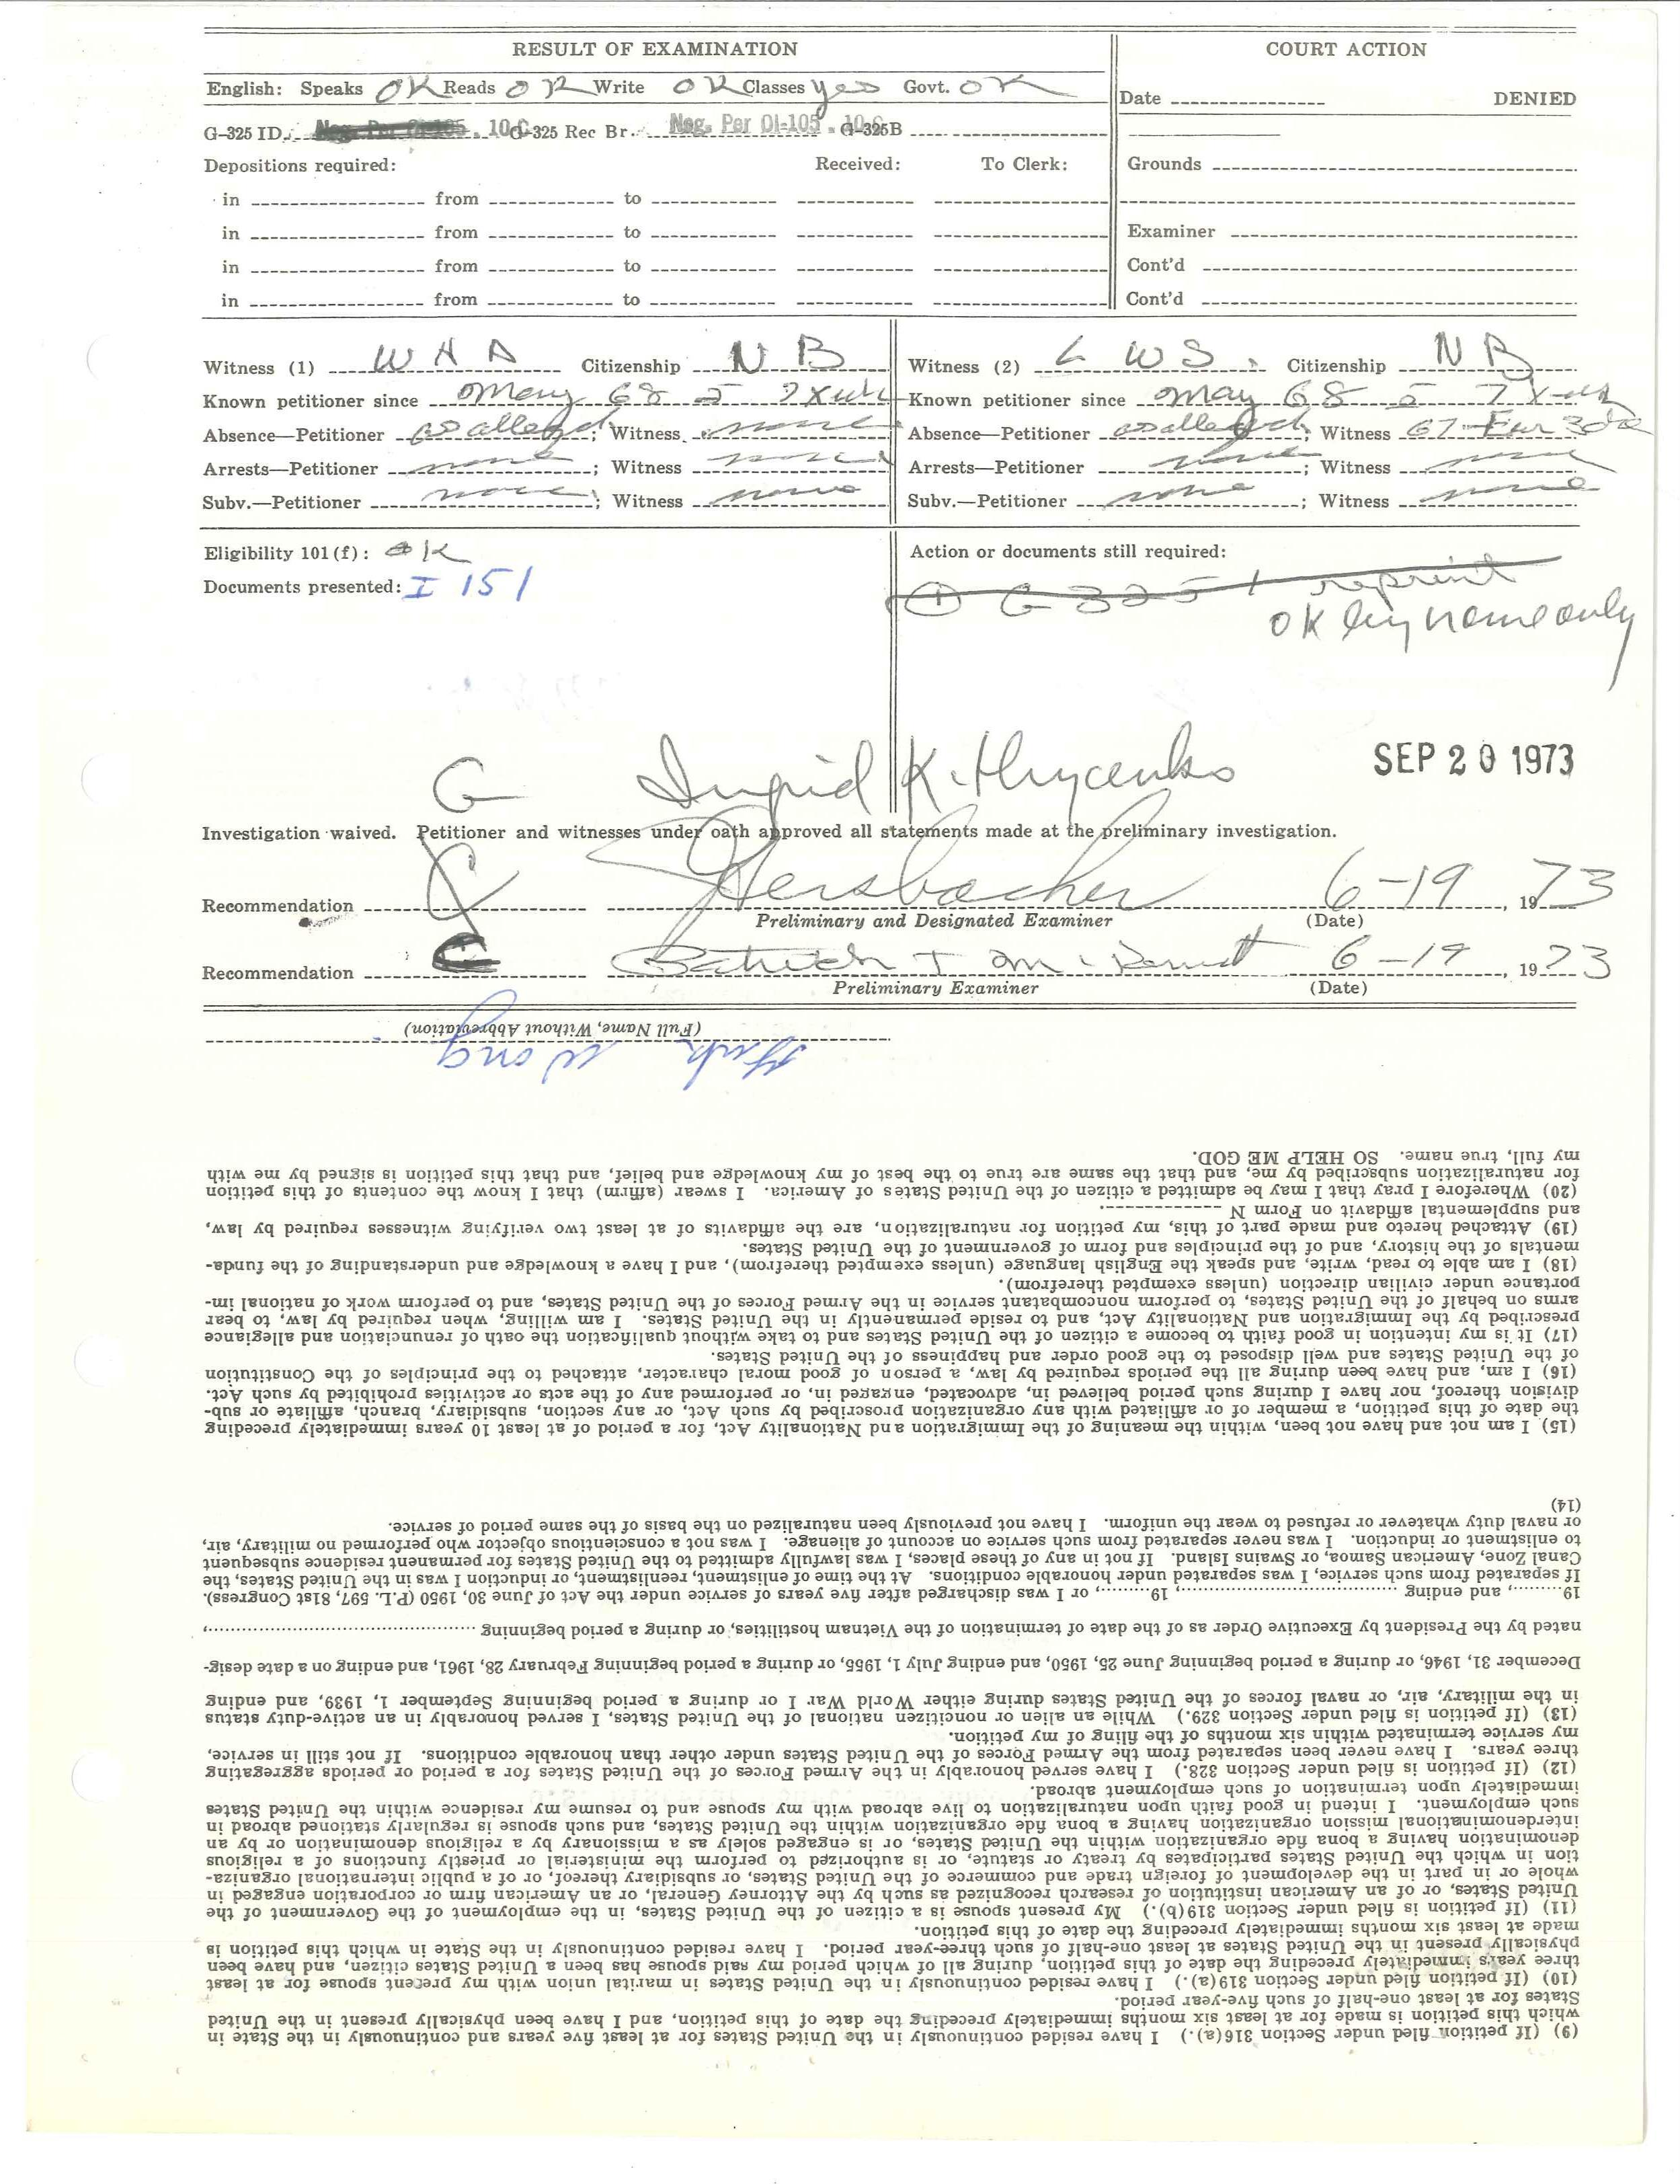 RESULT OF EXAMINATION
COURT ACTION
English: Speaks OK Reads OK Write OK Classes yes Govt. OK
Date DENIED
G-325 ID. Neg. Per OI-105 . 10 G-325 Rec Br. Neg. Per OI-105 . 10 G-325B
Depositions required: Received: To Clerk:
Grounds
in from to
in from to
Examiner
in from to
Cont'd
in from to
Cont'd
Witness (1) W H A Citizenship N B
Known petitioner since May 68
Absence—Petitioner as alleged; Witness none
Arrests—Petitioner none; Witness none
Subv.—Petitioner none; Witness none
Witness (2) L W S. Citizenship N B
Known petitioner since May 68
Absence—Petitioner as alleged; Witness 67
Arrests—Petitioner none; Witness none
Subv.—Petitioner none; Witness none
Eligibility 101(f): OK
Documents presented: I 151
Action or documents still required:
① G 325 reprint
OK by name only
G Ingrid K. Hrycenko
SEP 20 1973
Investigation waived. Petitioner and witnesses under oath approved all statements made at the preliminary investigation.
Recommendation 6-19, 1973
Preliminary and Designated Examiner (Date)
Recommendation 6-19, 1973
Preliminary Examiner (Date)
(9) (If petition filed under Section 316(a).) I have resided continuously in the United States for at least five years and continuously in the State in
which this petition is made for at least six months immediately preceding the date of this petition, and I have been physically present in the United
States for at least one-half of such five-year period.
(10) (If petition filed under Section 319(a).) I have resided continuously in the United States in marital union with my precent spouse for at least
three years immediately preceding the date of this petition, during all of which period my said spouse has been a United States citizen, and have been
physically present in the United States at least one-half of such three-year period. I have resided continuously in the State in which this petition is
made at least six months immediately preceding the date of this petition.
(11) (If petition is filed under Section 319(b).) My present spouse is a citizen of the United States, in the employment of the Government of the
United States, or of an American institution of research recognized as such by the Attorney General, or an American firm or corporation engaged in
whole or in part in the development of foreign trade and commerce of the United States, or subsidiary thereof, or of a public international organiza-
tion in which the United States participates by treaty or statute, or is authorized to perform the ministerial or priestly functions of a religious
denomination having a bona fide organization within the United States, or is engaged solely as a missionary by a religious denomination or by an
interdenominational mission organization having a bona fide organization within the United States, and such spouse is regularly stationed abroad in
such employment. I intend in good faith upon naturalization to live abroad with my spouse and to resume my residence within the United States
immediately upon termination of such employment abroad.
(12) (If petition is filed under Section 328.) I have served honorably in the Armed Forces of the United States for a period or periods aggregating
three years. I have never been separated from the Armed Forces of the United States under other than honorable conditions. If not still in service,
my service terminated within six months of the filing of my petition.
(13) (If petition is filed under Section 329.) While an alien or noncitizen national of the United States, I served honorably in an active-duty status
in the military, air, or naval forces of the United States during either World War I or during a period beginning September 1, 1939, and ending
December 31, 1946, or during a period beginning June 25, 1950, and ending July 1, 1955, or during a period beginning February 28, 1961, and ending on a date desig-
nated by the President by Executive Order as of the date of termination of the Vietnam hostilities, or during a period beginning ,
19 , and ending , 19 , or I was discharged after five years of service under the Act of June 30, 1950 (P.L. 597, 81st Congress).
If separated from such service, I was separated under honorable conditions. At the time of enlistment, reenlistment, or induction I was in the United States, the
Canal Zone, American Samoa, or Swains Island. If not in any of these places, I was lawfully admitted to the United States for permanent residence subsequent
to enlistment or induction. I was never separated from such service on account of alienage. I was not a conscientious objector who performed no military, air,
or naval duty whatever or refused to wear the uniform. I have not previously been naturalized on the basis of the same period of service.
(14)
(15) I am not and have not been, within the meaning of the Immigration and Nationality Act, for a period of at least 10 years immediately preceding
the date of this petition, a member of or affiliated with any organization proscribed by such Act, or any section, subsidiary, branch, affiliate or sub-
division thereof, nor have I during such period believed in, advocated, engaged in, or performed any of the acts or activities prohibited by such Act.
(16) I am, and have been during all the periods required by law, a person of good moral character, attached to the principles of the Constitution
of the United States and well disposed to the good order and happiness of the United States.
(17) It is my intention in good faith to become a citizen of the United States and to take without qualification the oath of renunciation and allegiance
prescribed by the Immigration and Nationality Act, and to reside permanently in the United States. I am willing, when required by law, to bear
arms on behalf of the United States, to perform noncombatant service in the Armed Forces of the United States, and to perform work of national im-
portance under civilian direction (unless exempted therefrom).
(18) I am able to read, write, and speak the English language (unless exempted therefrom), and I have a knowledge and understanding of the funda-
mentals of the history, and of the principles and form of government of the United States.
(19) Attached hereto and made part of this, my petition for naturalization, are the affidavits of at least two verifying witnesses required by law,
and supplemental affidavit on Form N .
(20) Wherefore I pray that I may be admitted a citizen of the United States of America. I swear (affirm) that I know the contents of this petition
for naturalization subscribed by me, and that the same are true to the best of my knowledge and belief, and that this petition is signed by me with
my full, true name. SO HELP ME GOD.
Wong
(Full Name, Without Abbreviation)